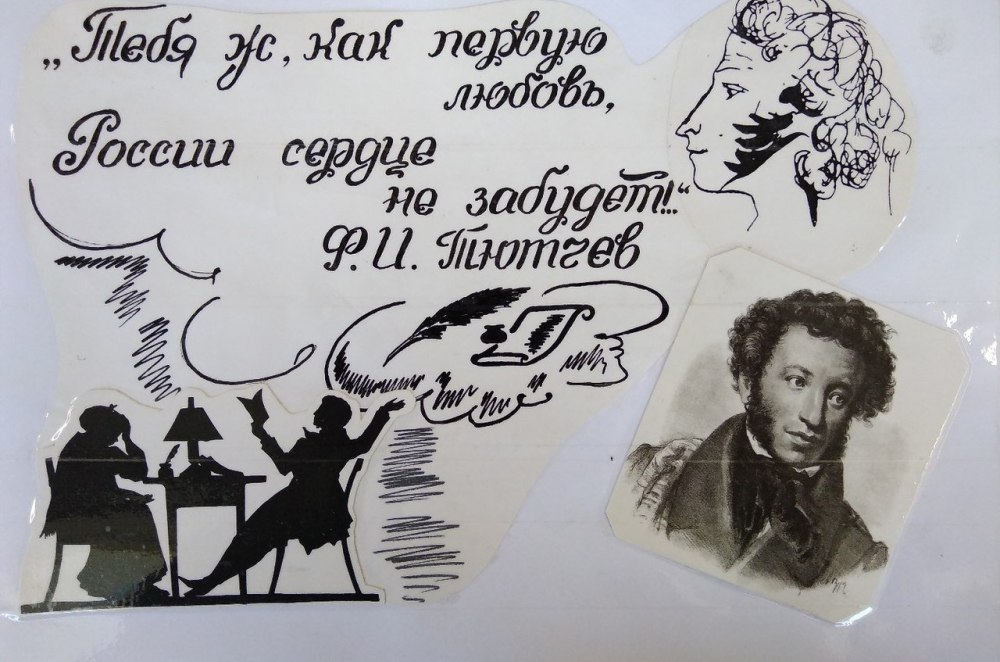 „Тебя ж, как первую
любовь,
России сердце
не забудет!.."
Ф. И. Тютчев